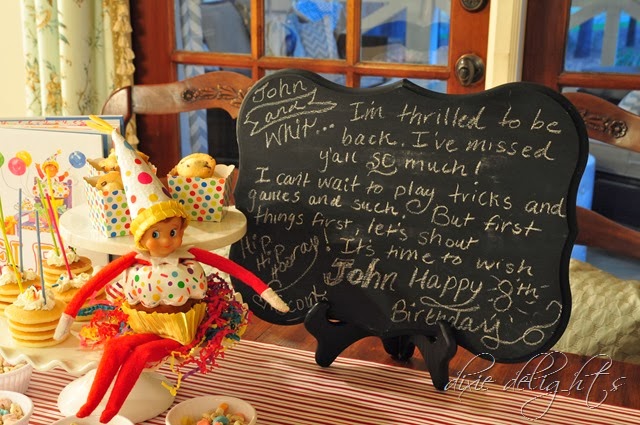 John
and
Whit... I'm thrilled to be
back. I've missed
y'all so much!
I can't wait to play tricks and
games and such! But first
things first, let's shout
Hip
Hip
Hooray! It's time to wish
John Happy 8th
Birthday!
Scout
dixie delights